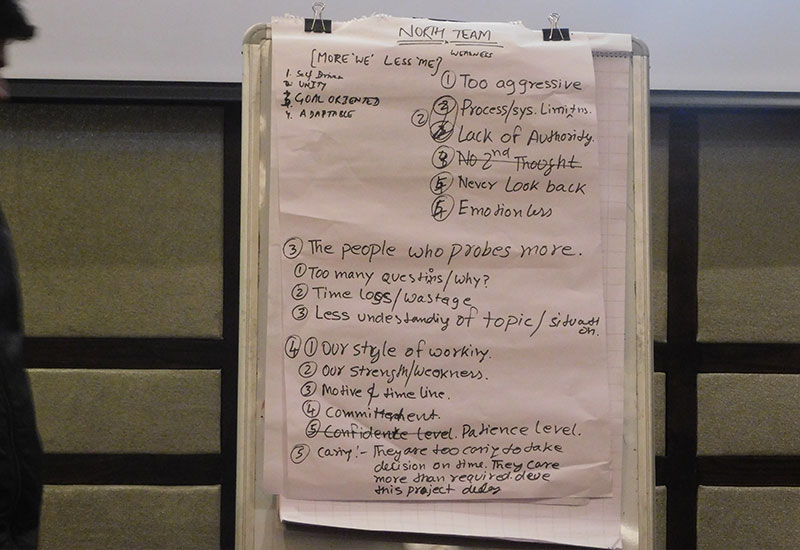 NORTH TEAM
[MORE 'WE' LESS 'ME']
WEAKNESS
1. Self Drive
2. UNITY
3. GOAL ORIENTED
4. ADAPTABLE
① Too aggressive
② ② Process/sys. Limitns.
Lack of Authority.
③ No 2nd Thought
④ Never Look back
⑤ Emotionless
③ The people who probes more.
① Too many questins/why?
② Time loss/wastage
③ Less undestandiy of topic/situation.
④ ① Our style of workiny.
② Our strength/weakness.
③ Motive & time line.
④ Committement.
⑤ Confidence level. Patience level.
⑤ Cariny:- They are too cariy to take
decision on time. They care
more than required.
this project delay